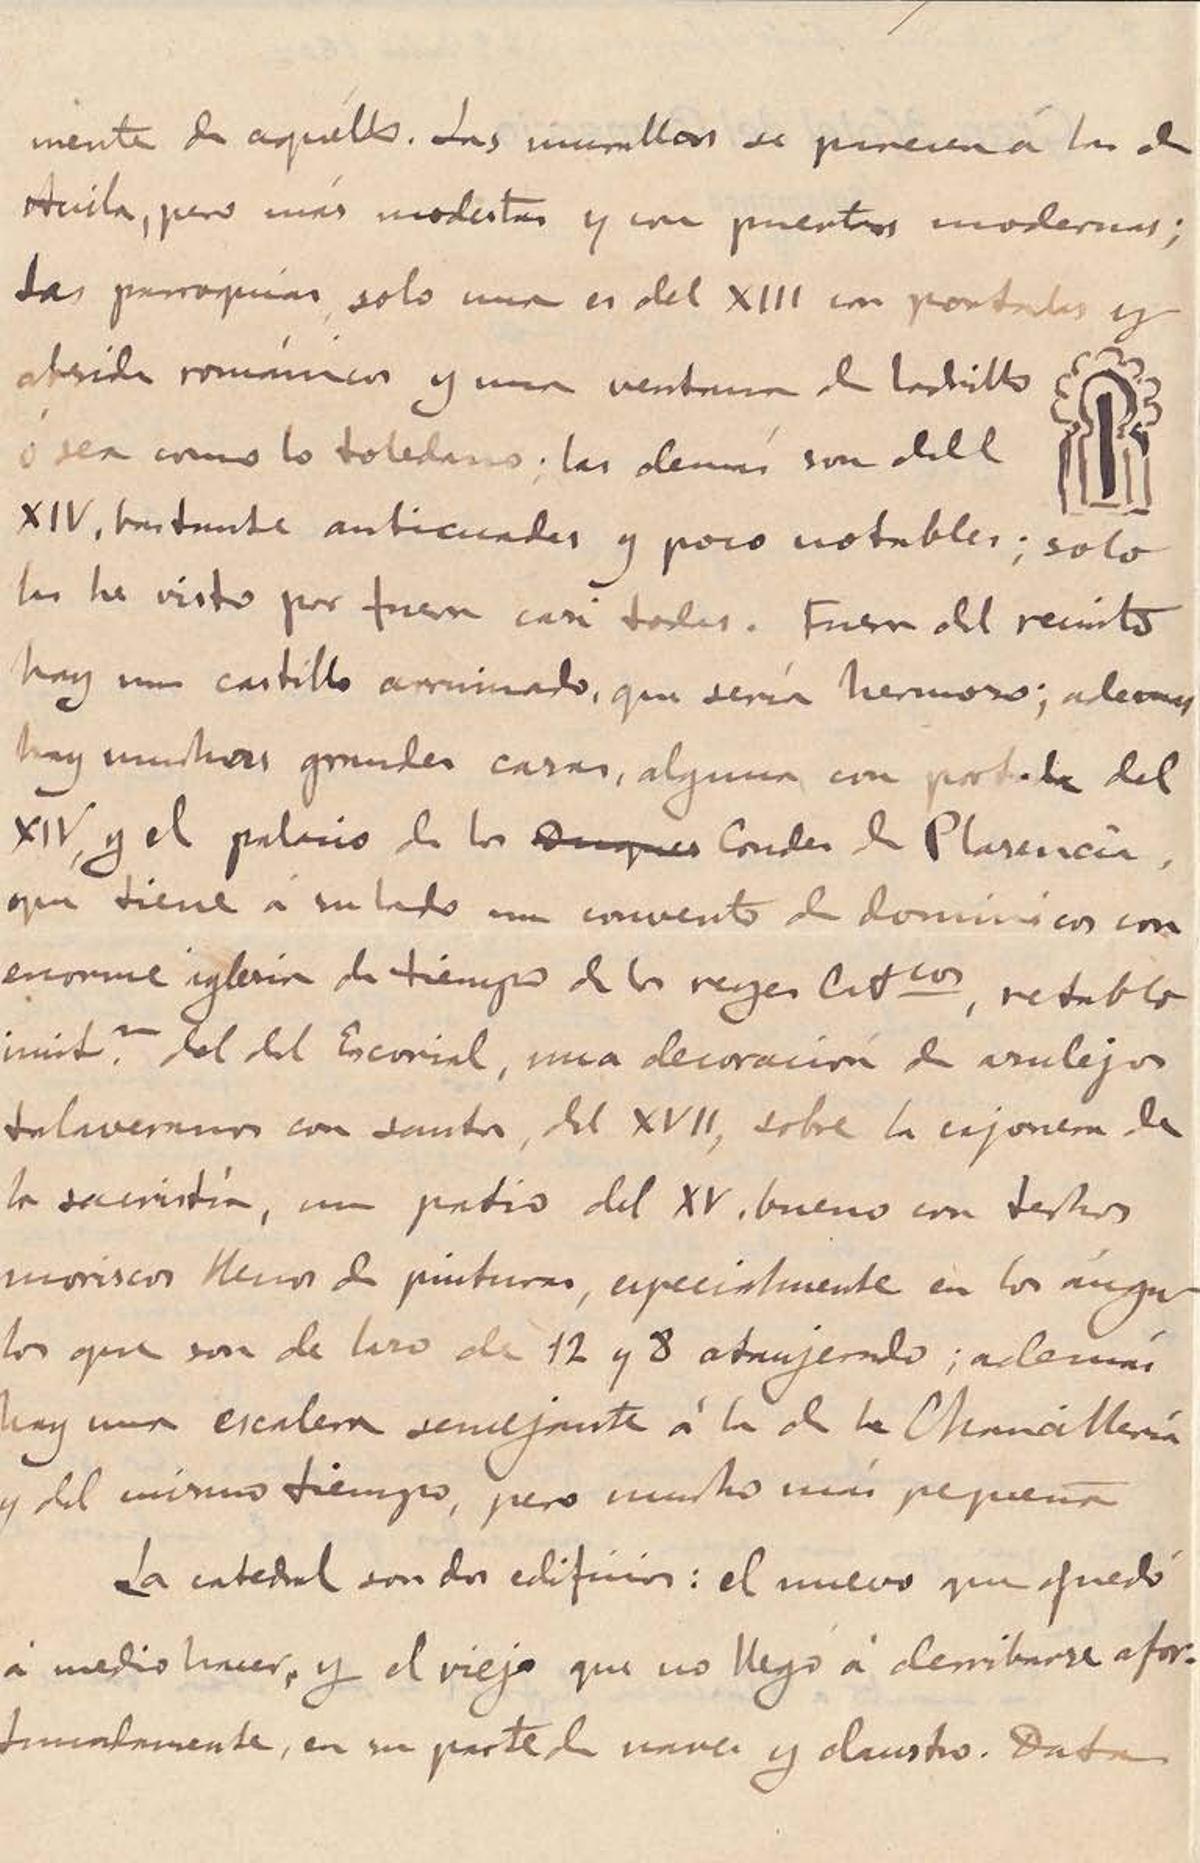 mente de aquéllo. Las murallas se parecen á las de
Avila, pero más modestas y con puertas modernas;
Las parroquias, solo una es del XIII con portadas y
abside románicos y una ventana de ladrillo
ó sea como lo toledano; las demás son dell
XIV, bastante anticuadas y poco notables; solo
las he visto por fuera casi todas. Fuera del recinto
hay un castillo arruinado, que sería hermoso; ademas
hay muchas grandes casas, alguna con portada del
XIV, y el palacio de los Duques Condes de Plasencia,
que tiene á su lado un convento de dominicos con
enorme iglesia de tiempo de los reyes Catcos, retablo
imit.n del del Escorial, una decoración de azulejos
talaveranos con santos, del XVII, sobre la cajonera de
la sacristía, un patio del XV, bueno con techos
moriscos llenos de pinturas, especialmente en los ángu-
los que son de lazo de 12 y 8 ataujerado; además
hay una escalera semejante á la de la Chancillería
y del mismo tiempo, pero mucho más pequeña
La catedral son dos edificios: el nuevo que quedó
á medio hacer, y el viejo que no llegó á derribarse afor-
tunadamente, en su parte de naves y claustro. Data